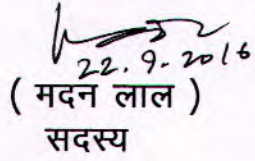 22.9.2016
( मदन लाल )
सदस्य